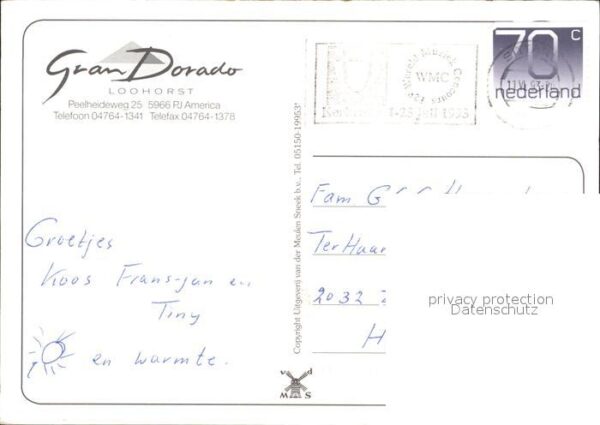 Gran Dorado
LOOHORST
Peelheideweg 25 5966 PJ America
Telefoon 04764-1341 Telefax 04764-1378
WMC
1-25 juli 1993
70 c
nederland
Copyright Uitgeverij van der Meulen Sneek b.v., Tel. 05150-19953*
Groetjes
Koos Frans-jan en
Tiny
en warmte.
Fam
Ter Haar
2032
H
privacy protection
Datenschutz
v d
M S